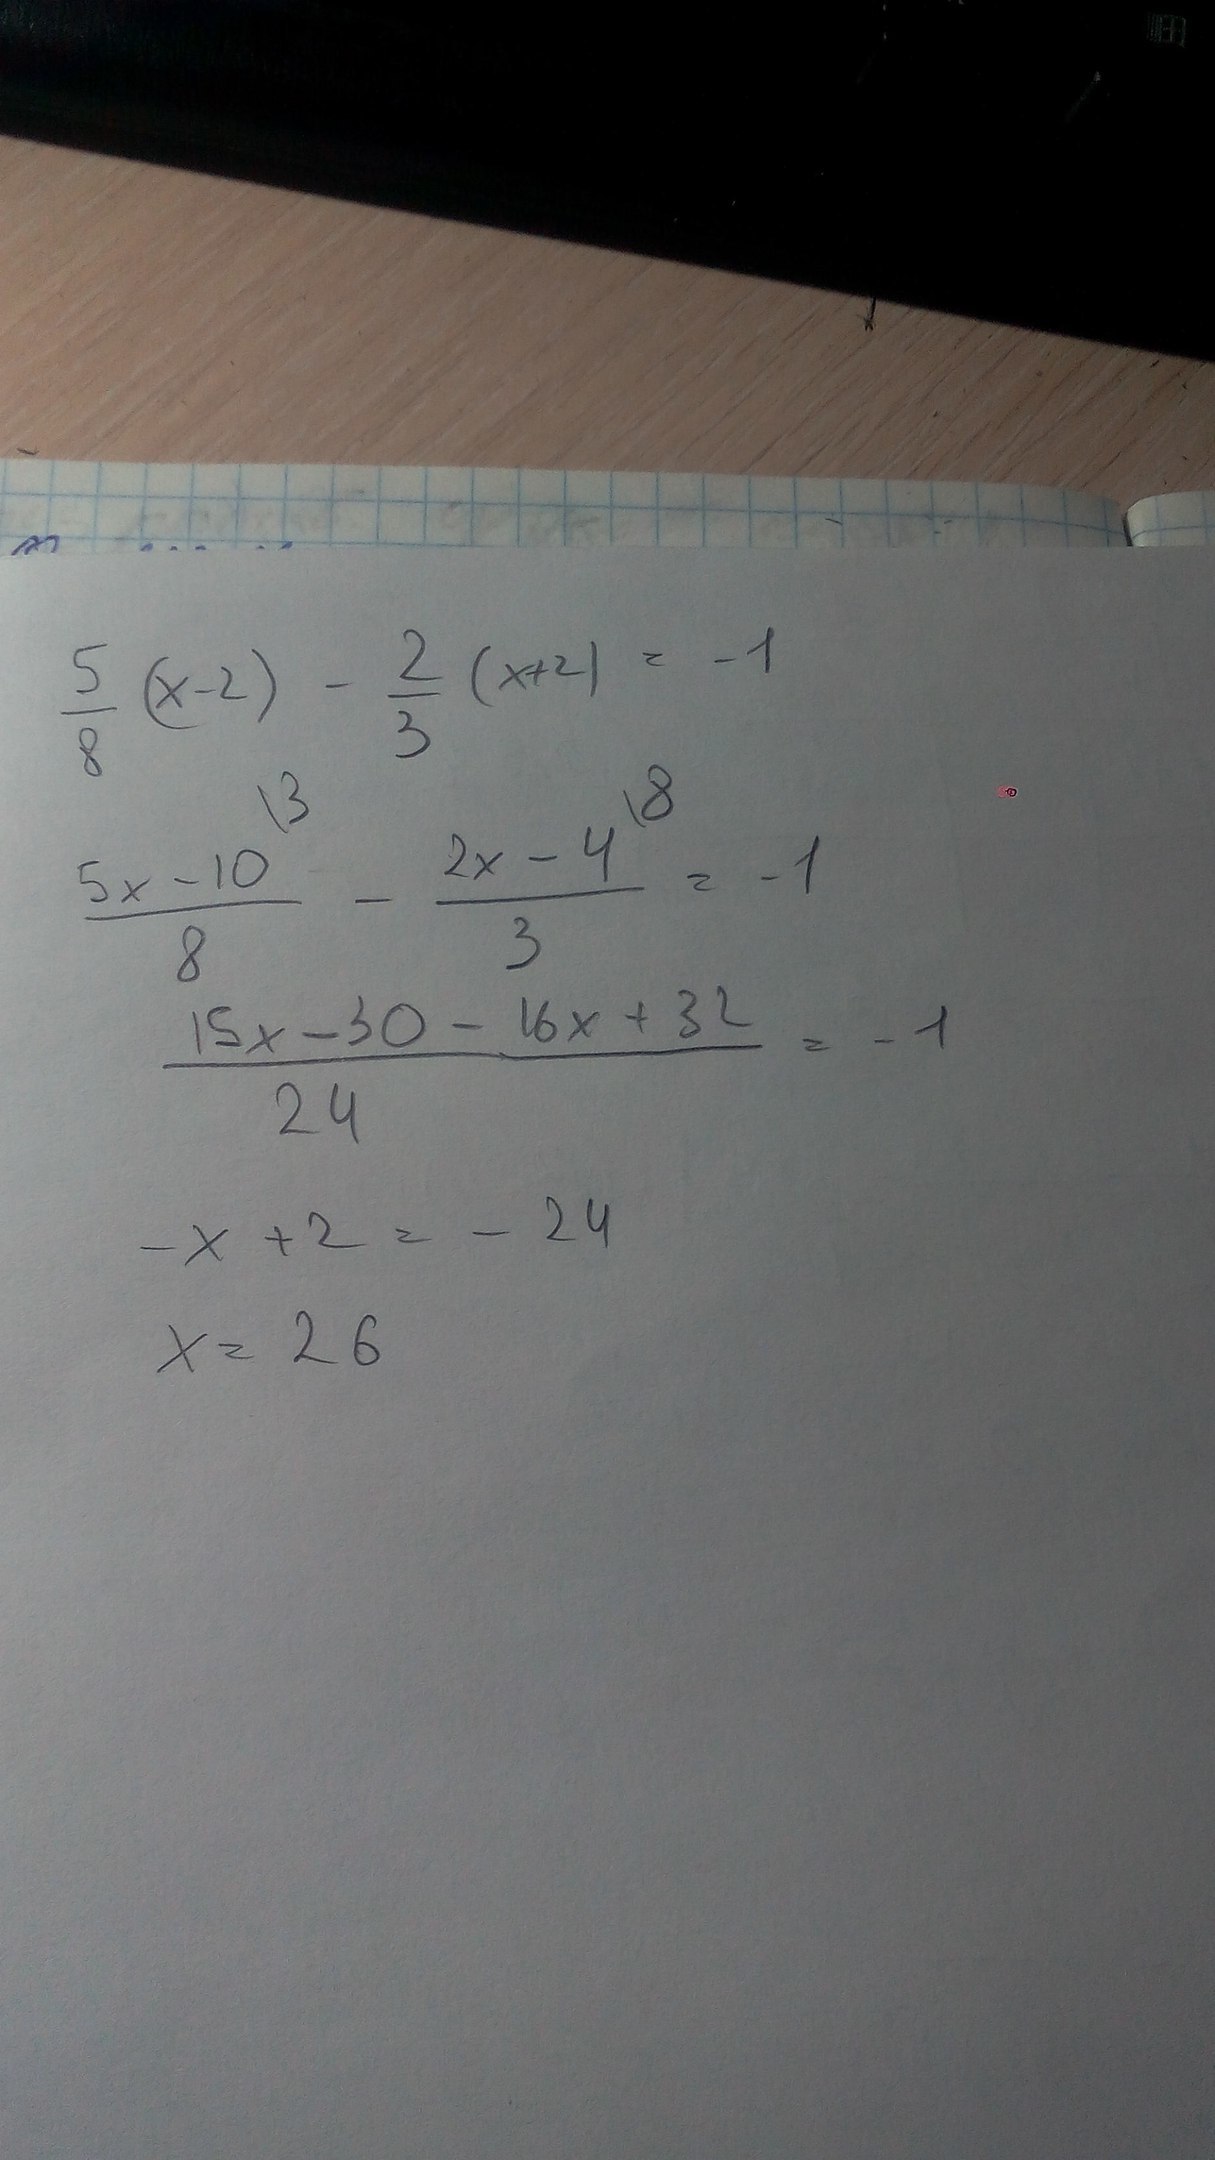 5/8 (x-2) - 2/3 (x+2) = -1
5x-10\3/8 - 2x-4\8/3 = -1
15x-30-16x+32/24 = -1
-x+2 = -24
x = 26